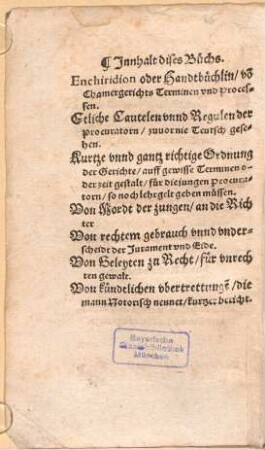 ¶ Innhalt dises Büchs.
Enchiridion oder Handtbüchlin / võ
Chamergerichts Terminen vnd Proces-
sen.
Etliche Cautelen vnnd Regulen der
Procuratorn / zuuor nie Teutsch gese-
hen.
Kurtze vnnd gantz richtige Ordnung
der Gerichte / auff gewisse Terminen o-
der zeit gestalt / für die jungen Procura-
torn / so noch lehrgelt geben müssen.
Von Mordt der zungen / an die Rich
ter
Von rechtem gebrauch vnnd vnder-
scheidt der Jurament vnd Eide.
Von Geleyten zu Recht / für vnrech
ten gewalt.
Von kündelichen vbertrettungẽ / die
mann Notorisch nennet / kurtzer bericht.
Bayerische
Staatsbibliothek
München